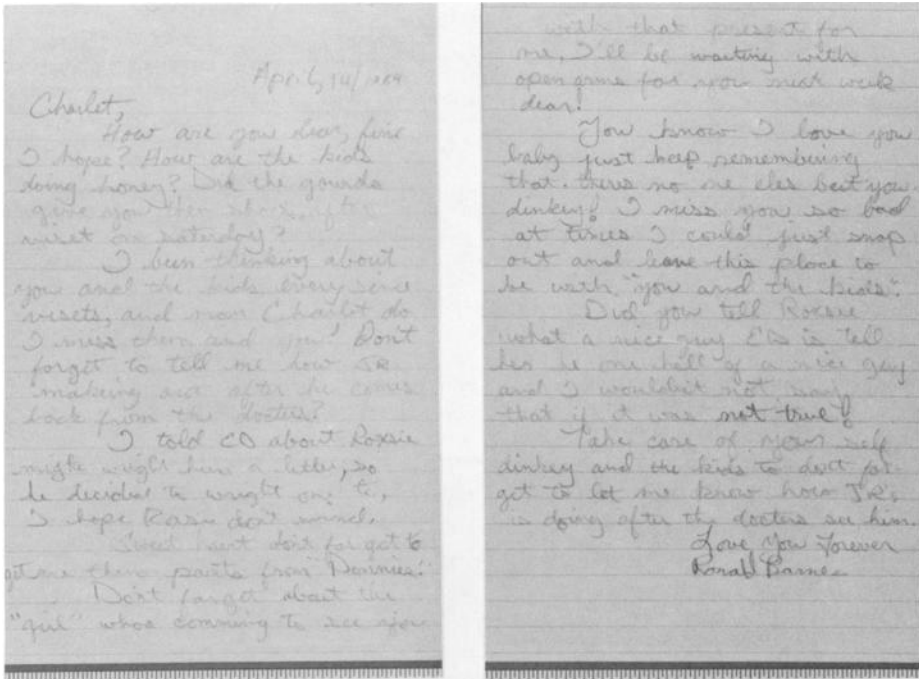 April, 14/1984
Charlet,
How are you dear, fine
I hope? How are the kids
doing honey? Did the gourds
give you them after
viset on saterday?
I been thinking about
you and the kids every sence
visets, and man Charlet do
I miss them and you! Don't
forget to tell me how JR
making out after he comes
back from the doctors?
I told ED about Roxsie
might wright him a letter, so
he decided to wright one to,
I hope Roxsie don't mind.
Sweet heart don't for get to
get me them pants from Donnies!
Don't forget about the
"girl" whos comming to see you
with that present for
me, I'll be waiting with
open arms for you next week
dear!
You know I love you
baby just keep remembering
that. theres no one eles but you
dinkey! I miss you so bad
at times I could just snap
out and leave this place to
be with "you and the kids".
Did you tell Roxsie
what a nice guy ED is tell
her he one hell of a nice guy
and I wouldn't not say
that if it was not true!
Take care of your self
dinkey and the kids to don't for
get to let me know how JR's
is doing after the doctors see him.
Love You Forever
Ronald Barnes